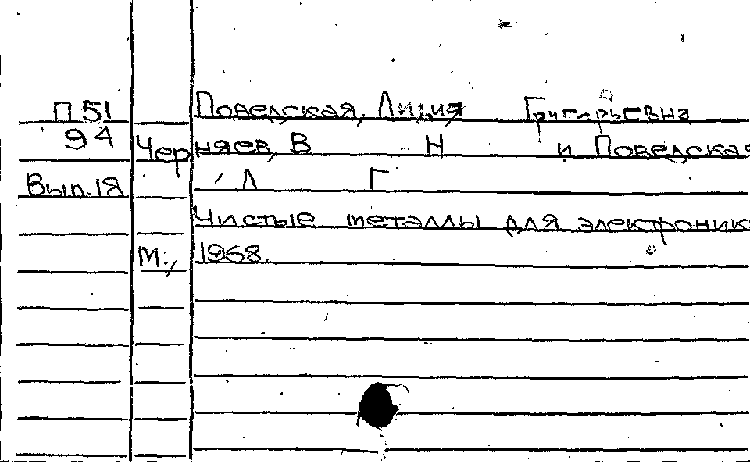 П 51 Поведская, Лидия Григорьевна
94 Черняев, В Н и Поведская
Вып. 18 Л Г
Чистые металлы для электроник
М., 1968.